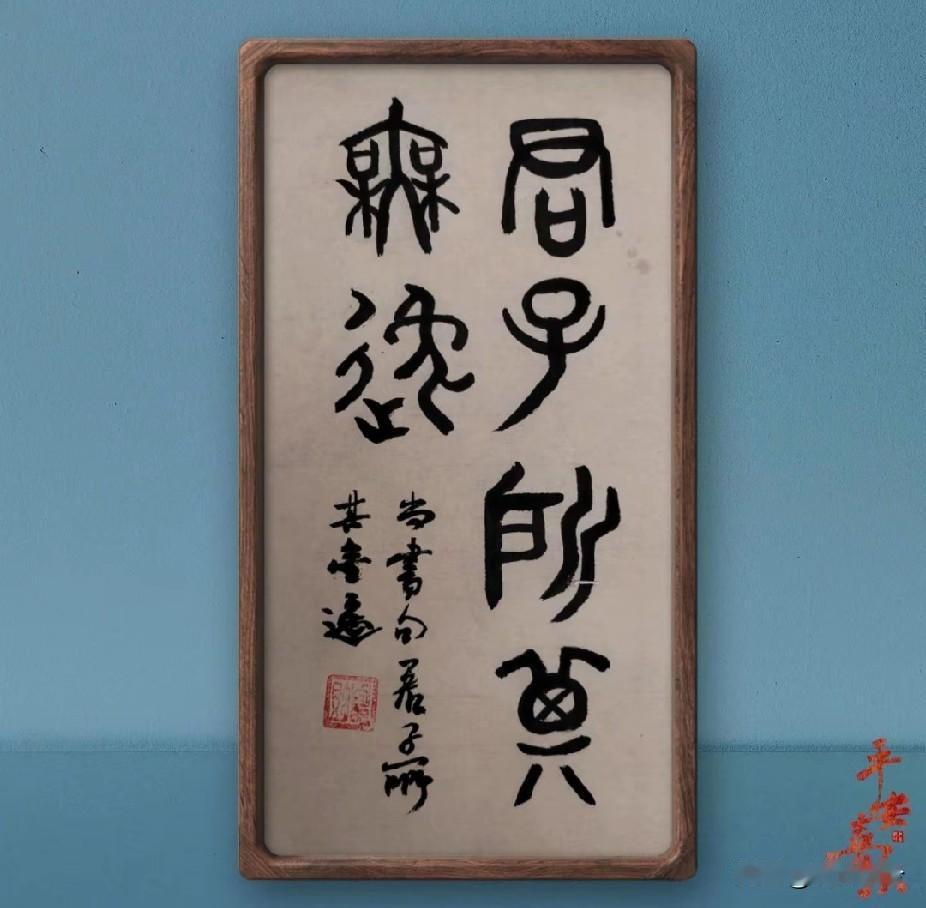 君子所其
無逸
尚書句君子所
其無逸
平安喜乐